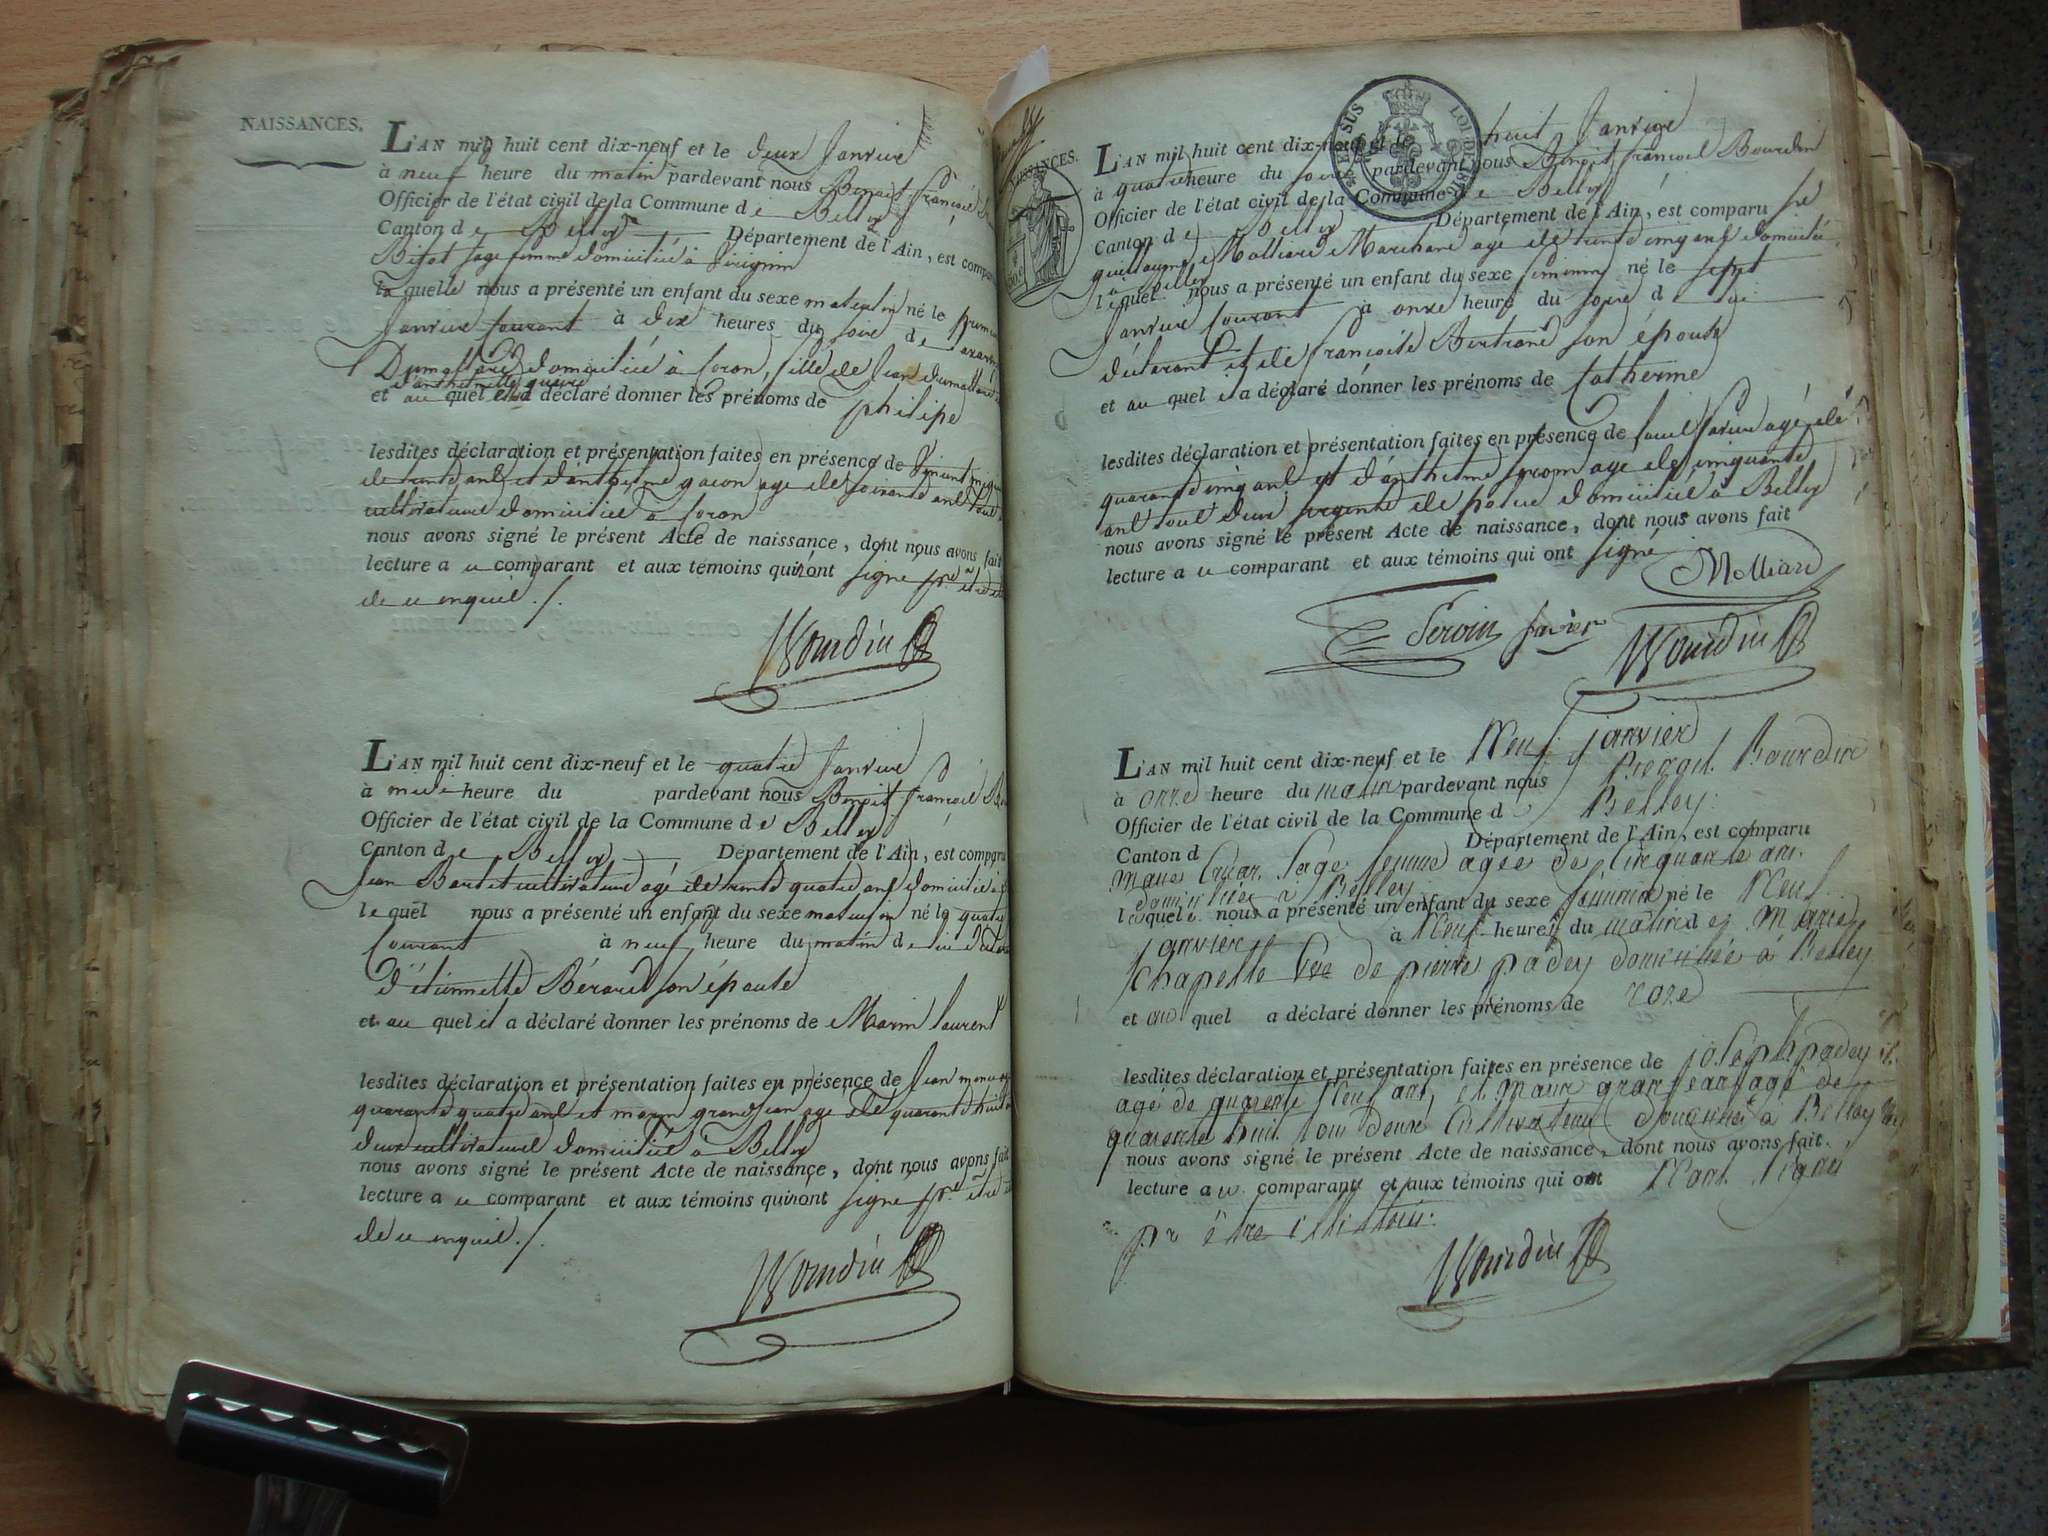 NAISSANCES.
L'AN mil huit cent dix-neuf et le deux Janvier
à neuf heure du matin pardevant nous Benoit françois
Officier de l'état civil de la Commune de Belley
Canton de Belley Département de l'Ain, est comparu
sage femme domiciliée à
la quelle nous a présenté un enfant du sexe masculin né le premier
Janvier courant à dix heures du soir de
domiciliée à Coron, fille de Jean
et au quel elle a déclaré donner les prénoms de philipe
lesdites déclaration et présentation faites en présence de Vincent
de trente ans et d'anthelme gacon age de soixante ans tous
cultivateurs domiciliés à Coron
nous avons signé le présent Acte de naissance, dont nous avons fait
lecture a ce comparant et aux témoins qui n'ont signé pr
de ce enquis ./.
Bourdin
L'AN mil huit cent dix-neuf et le quatre Janvier
à midi heure du pardevant nous Benoit françois
Officier de l'état civil de la Commune de Belley
Canton de Belley Département de l'Ain, est comparu
Jean cultivateur agé de trente quatre ans domicilié à
lequel nous a présenté un enfant du sexe masculin né le quatre
Courant à neuf heure du matin de
d'étiennette Bérard son épouse
et au quel il a déclaré donner les prénoms de Marin laurent
lesdites déclaration et présentation faites en présence de Jean
quarante quatre ans et marin grandjean age de quarante huit
deux cultivateurs domiciliés à Belley
nous avons signé le présent Acte de naissance, dont nous avons fait
lecture a ce comparant et aux témoins qui n'ont signé pr
de ce enquis ./.
Bourdin
NAISSANCES.
L'AN mil huit cent dix-neuf et le huit Janvier
à quatre heure du soir pardevant nous Benoit françois Bourdin
Officier de l'état civil de la Commune de Belley
Canton de Belley Département de l'Ain, est comparu
guillaume Molliard Marchand age de trente cinq ans domicilié
à Belley
lequel nous a présenté un enfant du sexe féminin né le sept
Janvier courant à onze heure du soir de
déclarant et de françoise Bertrand son épouse
et au quel il a déclaré donner les prénoms de Catherine
lesdites déclaration et présentation faites en présence de agé de
quarante cinq ans et d'anthelme age de cinquante
ans tous deux sergents de police domiciliés à Belley
nous avons signé le présent Acte de naissance, dont nous avons fait
lecture a ce comparant et aux témoins qui ont signé
Molliard
Bourdin
L'AN mil huit cent dix-neuf et le Neuf janvier
à onze heure du matin pardevant nous Benoit Bourdin
Officier de l'état civil de la Commune de Belley
Canton d Département de l'Ain, est comparu
marie Sage femme agée de cinquante ans
domiciliée à Belley
laquelle nous a présenté un enfant du sexe féminin né le Neuf
janvier à Neuf heures du matin de Marie
Chapelle Vve de pierre padey domiciliée à Belley
et au quel a déclaré donner les prénoms de roze
lesdites déclaration et présentation faites en présence de joseph padey
agé de quarente Neuf ans, et Marin grandjean agé de
quarente huit tous deux Cultivateurs domiciliés à Belley
nous avons signé le présent Acte de naissance, dont nous avons fait
lecture a ce comparant et aux témoins qui ont Nont signé
pr être illitérés.
Bourdin